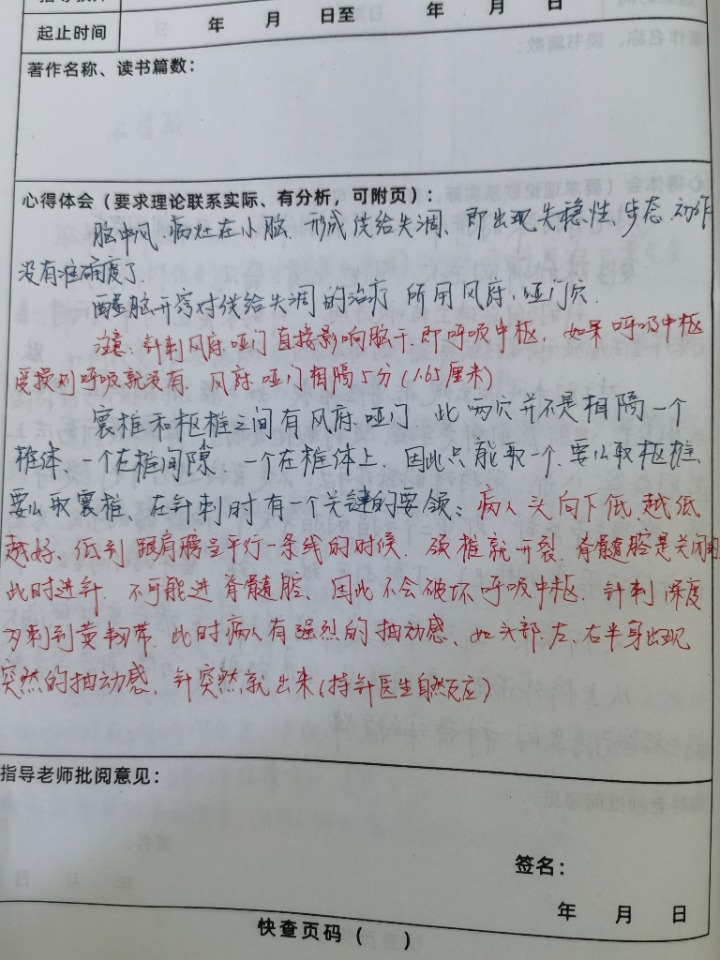 指导教师
起止时间
年 月 日至 年 月 日
著作名称、读书篇数：
心得体会（要求理论联系实际、有分析，可附页）：
脑中风.病灶在小脑 形成供给失调、即出现失稳性、步态.动作
没有准确度了.
醒脑开窍对供给失调的治疗 所用风府.哑门穴.
注意：针刺风府.哑门直接影响脑干.即呼吸中枢，如果呼吸中枢
受损则呼吸就没有. 风府.哑门相隔5分(1.65厘米)
寰椎和枢椎之间有风府.哑门 此两穴并不是相隔一个
椎体.一个在椎间隙、一个在椎体上.因此只能取一个.要么取枢椎
要么取寰椎.在针刺时有一个关键的要领：病人头向下低、越低
越好、低到跟肩膀呈平行一条线的时候.颈椎就开裂.脊髓腔是关闭的
此时进针.不可能进脊髓腔、因此不会破坏呼吸中枢.针刺深度
为刺到黄韧带.此时病人有强烈的抽动感、如头部.左.右半身出现
突然的抽动感、针突然就出来(持针医生自然反应)
指导老师批阅意见：
签名：
年 月 日
快查页码（ ）